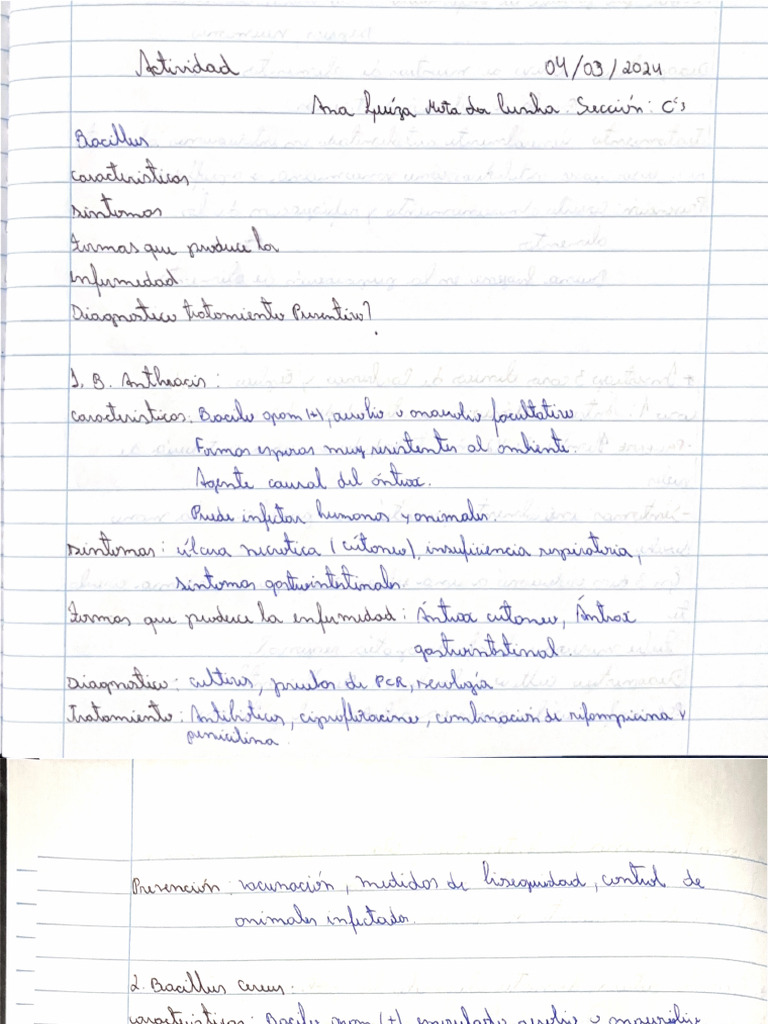 Actividad 04/03/2024
Ana Luiza Mota da Cunha. Sección: C's
Bacillus
Caracteristicas
Sintomas
Formas que produce la
enfermedad
Diagnostico tratamiento Preventivo?
1. B. Anthracis:
Caracteristicas: Bacilo gram (+), aerobio o anaerobio facultativo.
Formas esporas muy resistentes al ambiente.
Agente causal del ántrax.
Puede infectar humanos y animales.
Sintomas: úlcera necrotica (cútaneo), insuficiencia respiratoria,
sintomas gastrointestinales.
Formas que produce la enfermedad: Ántrax cutaneo, Ántrax
gastrointestinal.
Diagnostico: cultivos, pruebas de PCR, serologia
Tratamiento: Antibioticos, ciprofloxacino, combinación de rifampicina y
penicilina.
Prevención: vacunación, medidas de bioseguridad, control de
animales infectados.
2. Bacillus cereus:
Caracteristicas: Bacilo gram (+), aerobio o anaerobio